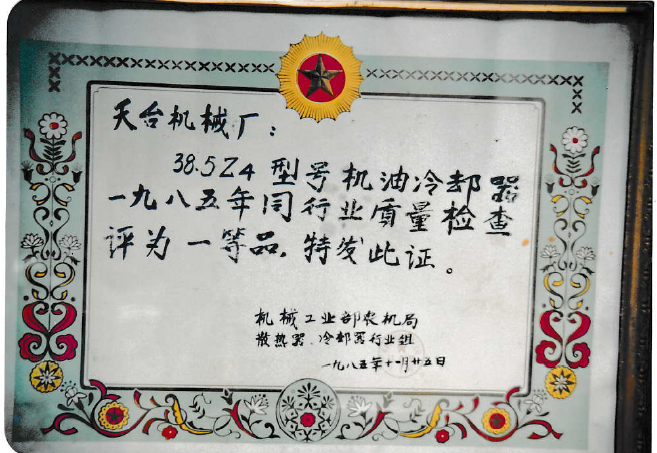 天台机械厂：
38.5Z4型号机油冷却器
一九八五年同行业质量检查
评为一等品，特发此证。
机械工业部农机局
散热器、冷却器行业组
一九八五年十一月廿五日